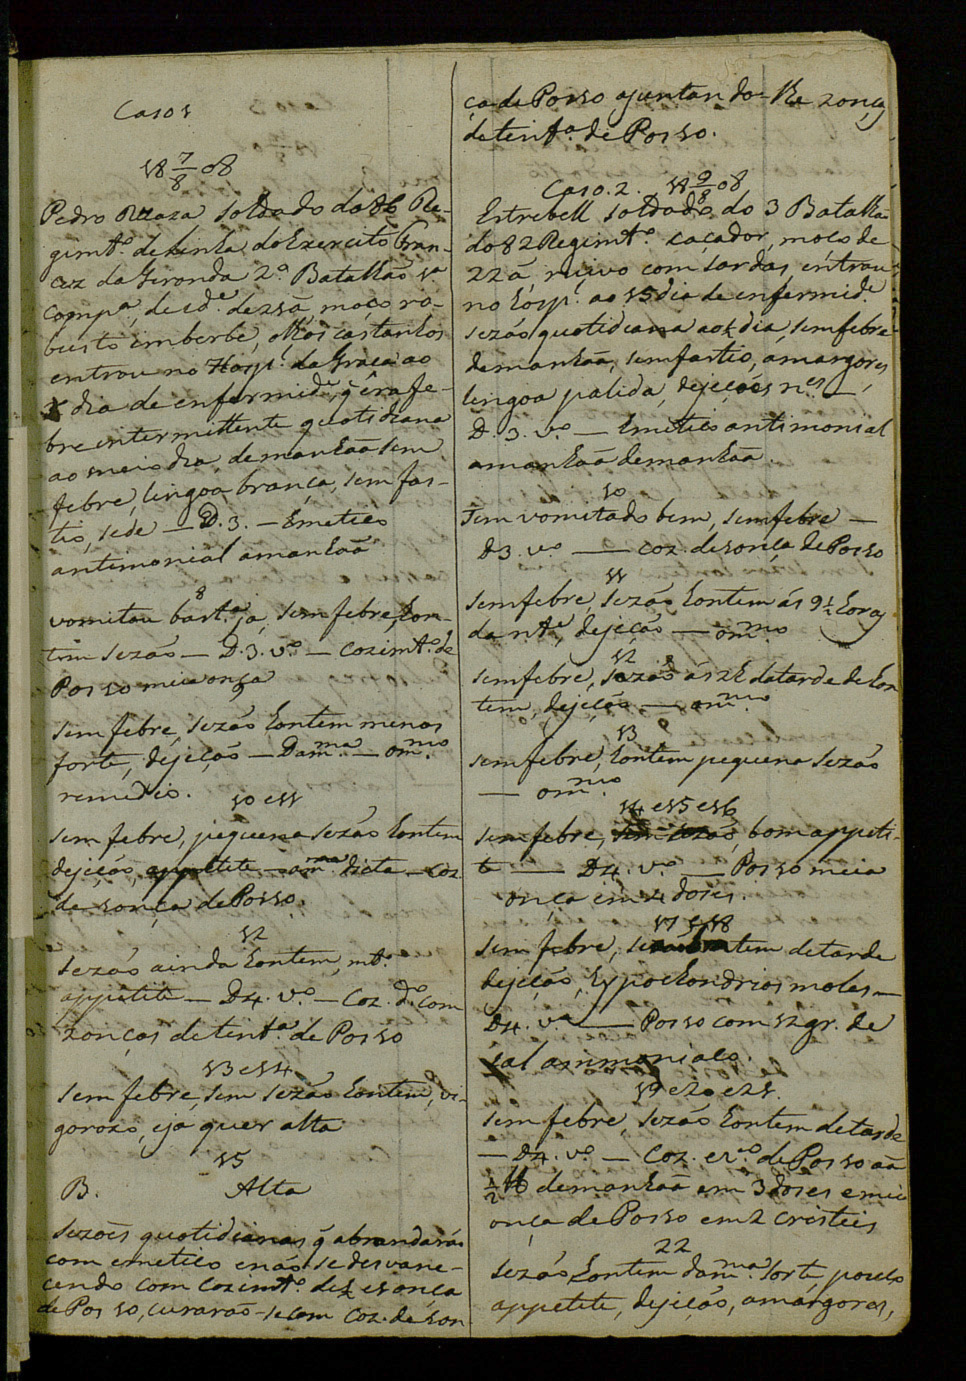 Caso 1
18 7/8 08
Pedro Razaza soldado do 86 Re-
gimtº. de linha do Exercito Fran-
cez da Gironda 2º Batalhaõ 1ª
Compª, de idᵉ. de 21 â, moço ro-
busto imberbe, olhos castanhos
entrou no Hospˡ. da Graça ao
dia de enfermidᵉ, q̃ éra fe-
bre intermittente quotidiana
ao meio dia, de manhaã sem
febre, lingoa branca, sem fas-
tio, sede — D. 3. — Emetico
antimonial amanhaã
8
vomitou bastᵉ ja, sem febre, hon-
tem sezaõ — D. 3. vº — Cozimtº. de
Posso meia onça
sem febre, sezaõ hontem menos
forte, dejeçaõ — Damᵐᵃ — omᵐᵒ.
remedio.
10 e 11
sem febre, pequena sezaõ hontem
dejeçaõ, appetite — omᵐᵃ dieta — Coz
de 1 onça de Posso.
12
sezaõ ainda hontem, mtº.
appetite — D4. vº. — Coz. dº. com
2 onças de tintª. de Posso
13 e 14
sem febre, sem sezaõ hontem, vi-
goroso, e ja quer alta
15
B. Alta
Sezoẽs quotidianas q̃ abrandaraõ
com emetico e naõ se desvane-
cendo com cozimtº. de ½ e 1 onça
de Posso, curaraõ-se com Coz. de 1 on-
ça de Posso ajuntando-lhe 2 onças
de tintª. de Posso.
Caso. 2. 18 9/8 08
Estrebell soldado do 3 Batalhaõ
do 82 Regimtº. caçador, moço de
22 â, ruivo com sardas, entrou
no hospˡ. ao 15 dia de enfermidᵉ.
sezaõ quotidiana ao ½ dia, sem febre
de manhaã, sem fastio, amargores
lingoa palida, dejeçoẽs nᵉˢ —
D. 3. vº. — Emetico antimonial
amanhaã de manhaã.
10
Tem vomitado bem, sem febre —
D3. vº. — coz. de 1 onça de Posso
11
sem febre, sezaõ hontem ás 9½ horas
da ntᵉ, dejeçaõ — omᵐᵒ
12
sem febre, sezaõ ás 2 h da tarde de hon
tem, dejeçaõ — omᵐᵒ.
13
sem febre, hontem pequena sezaõ
— omᵐᵒ.
14 e 15 e 16
sem febre, sem sezaõ, bom appeti-
te — D4. vº. — Posso meia
onça em 4 doses.
17 e 18
sem febre, sezaõ hontem de tarde
dejeçaõ, hypochondrios moles —
D4. vª — Posso com 12 gr. de
sal ammoniaco.
19 e 20 e 21.
sem febre, sezaõ hontem de tarde
— D4. vº. — Coz. e rᶜᵒ de Posso aã
½ ℔ de manhaã em 3 doses e meia
onça de Posso em 2 cristeis
22
sezaõ hontem damᵐᵃ sorte, pouco
appetite, dejeçaõ, amargores,